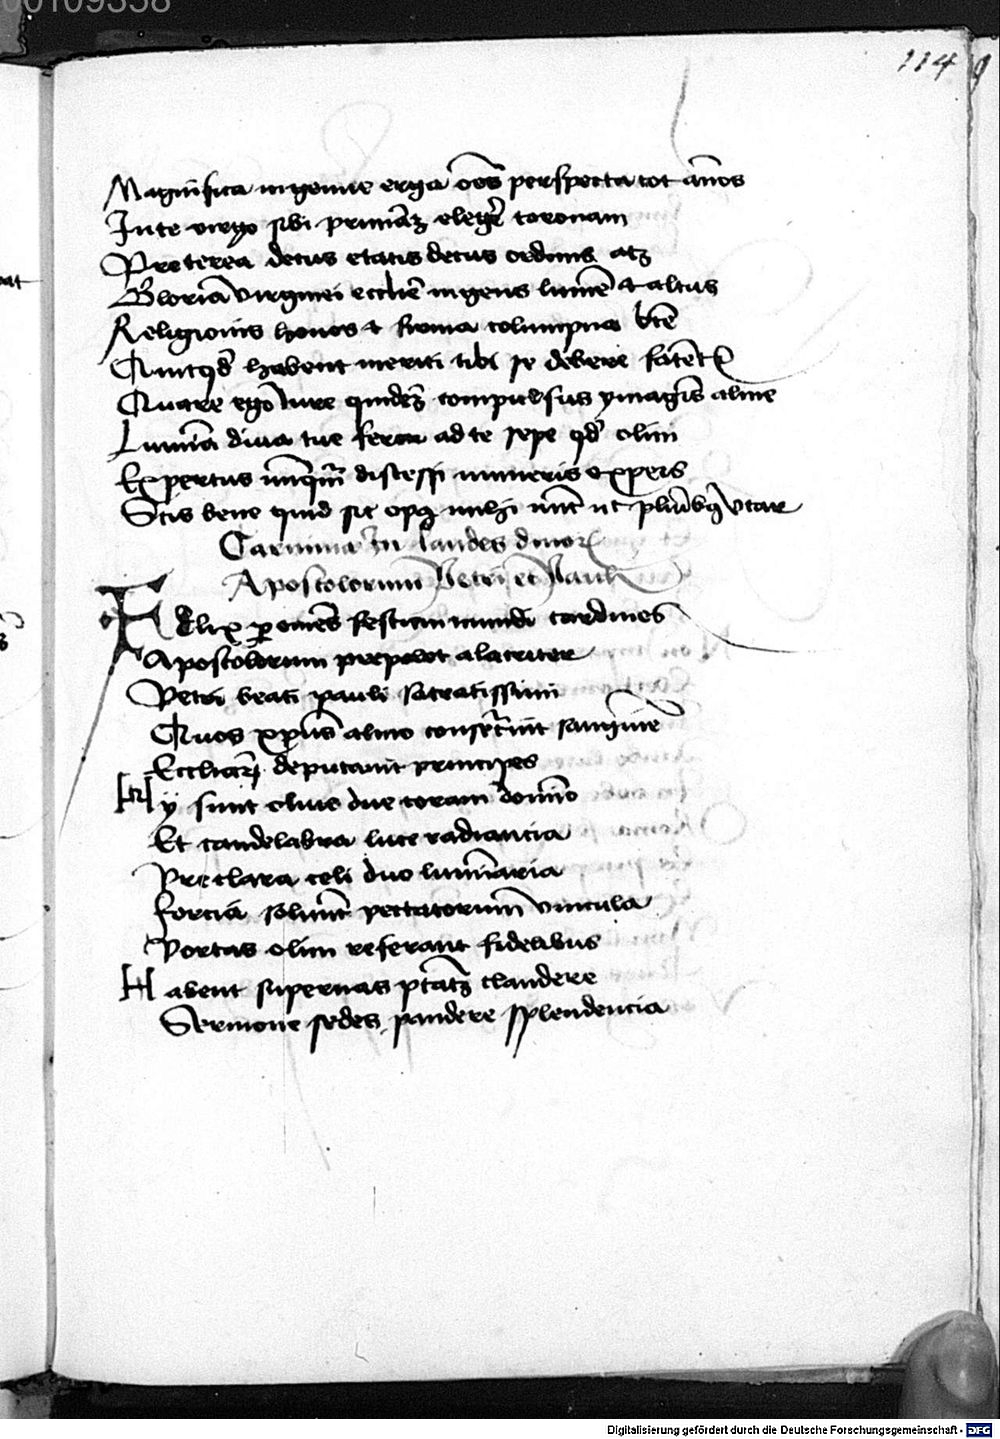 00109358
114
Magnifica ingenue erga oēs perspecta tot ān̄os
In te virgo sibi primāꝫ elegē coronam
Preterea decus etatis decus ordinis atꝫ
Gloriā virginei ecclīe ingens lumē & altus
Religionis honos & firma columpna
Quicqd̄ habent meriti tibi se debere fatēt
Quare ego iure quidē compulsus ymagīs alme
Lumīa diua tue feror ad te sepe qd̄ olim
Expertus nūq̄m̄ discessi muneris expers
Scis bene quid sit opꝫ michi nūc ut plurībꝫ vtar
Carmina in laudes diuoꝝ
Apostolorum Petri et Pauli
Felix ꝑ omēs festum mundi cardines
Apostolorum prepolet alacriter
Petri beati pauli sacratissimi
Quos xp̄us almo consecrauit sanguīe
Eccliaꝝ deputauit principes
Hy sunt oliue due coram domīo
Et candelabra luce radiancia
Preclara celi duo lumīaria
forcia soluūt peccatorum vincula
Portas olimpi referant fidelibus
Habent supernas ptātꝫ claudere
Sermone sedes pandere splendencia
Digitalisierung gefördert durch die Deutsche Forschungsgemeinschaft - DFG